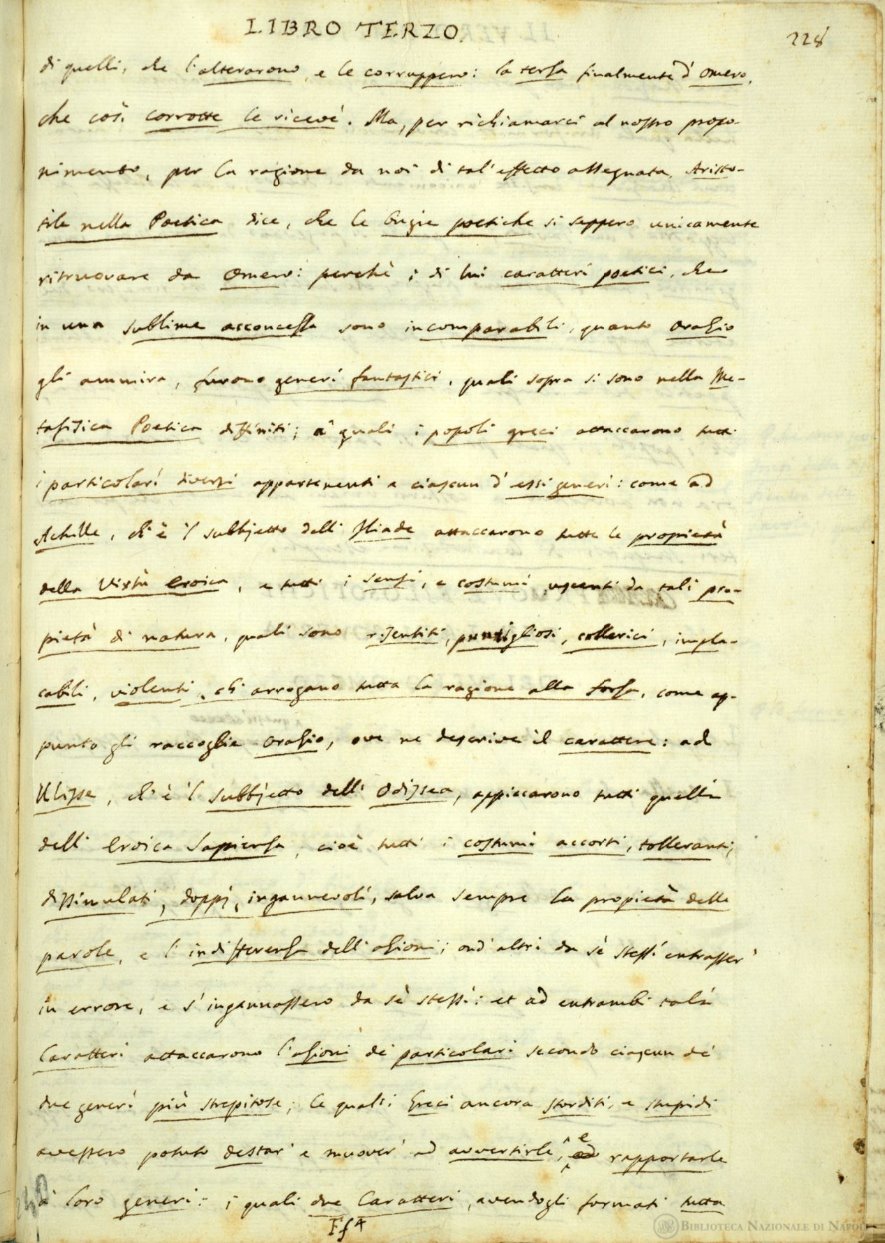 LIBRO TERZO.
228
di quelli, che l'alterarono, e le corruppero: la terza finalmente d'Omero,
che così corrotte le ricevè. Ma, per richiamarci al nostro propo-
nimento, per la ragione da noi di tal'effetto assegnata, Aristo-
tile nella Poetica dice, che le bugie poetiche si seppero unicamente
ritruovare da Omero: perchè i di lui caratteri poetici, che
in una sublime acconcezza sono incomparabili, quanto Orazio
gli ammira, furono generi fantastici, quali sopra si sono nella Me-
tafisica Poetica diffiniti; a' quali i popoli greci attaccarono tutti
i particolari diversi appartenenti a ciascun d'essi generi: come ad
Achille, ch'è 'l subbjetto dell'Iliade attaccarono tutte le propietà
della Virtù eroica, e tutti i sensi, e costumi uscenti da tali pro-
pietà di natura, quali sono risentiti, puntigliosi, collerici, impla-
cabili, violenti, ch'arrogano tutta la ragione alla forza, come ap-
punto gli raccoglie Orazio, ove ne descrive il carattere: ad
Ulisse, ch'è 'l subbjetto dell'Odissea, appiccarono tutti quelli
dell'eroica Sapienza, cioè tutti i costumi accorti, tolleranti,
dissimulati, doppj, ingannevoli, salva sempre la propietà delle
parole, e l'indifferenza dell'azioni; ond'altri da sè stessi entrasser'
in errore, e s'ingannassero da sè stessi: et ad entrambi tali
Caratteri attaccarono l'azioni de' particolari secondo ciascun de'
due generi più strepitose; le quali i Greci ancora storditi, e stupidi
avessero potuto destar' e muover' ad avvertirle, e rapportarle
a' loro generi: i quali due Caratteri, avendogli formati tutta
Ff4
BIBLIOTECA NAZIONALE DI NAPOLI